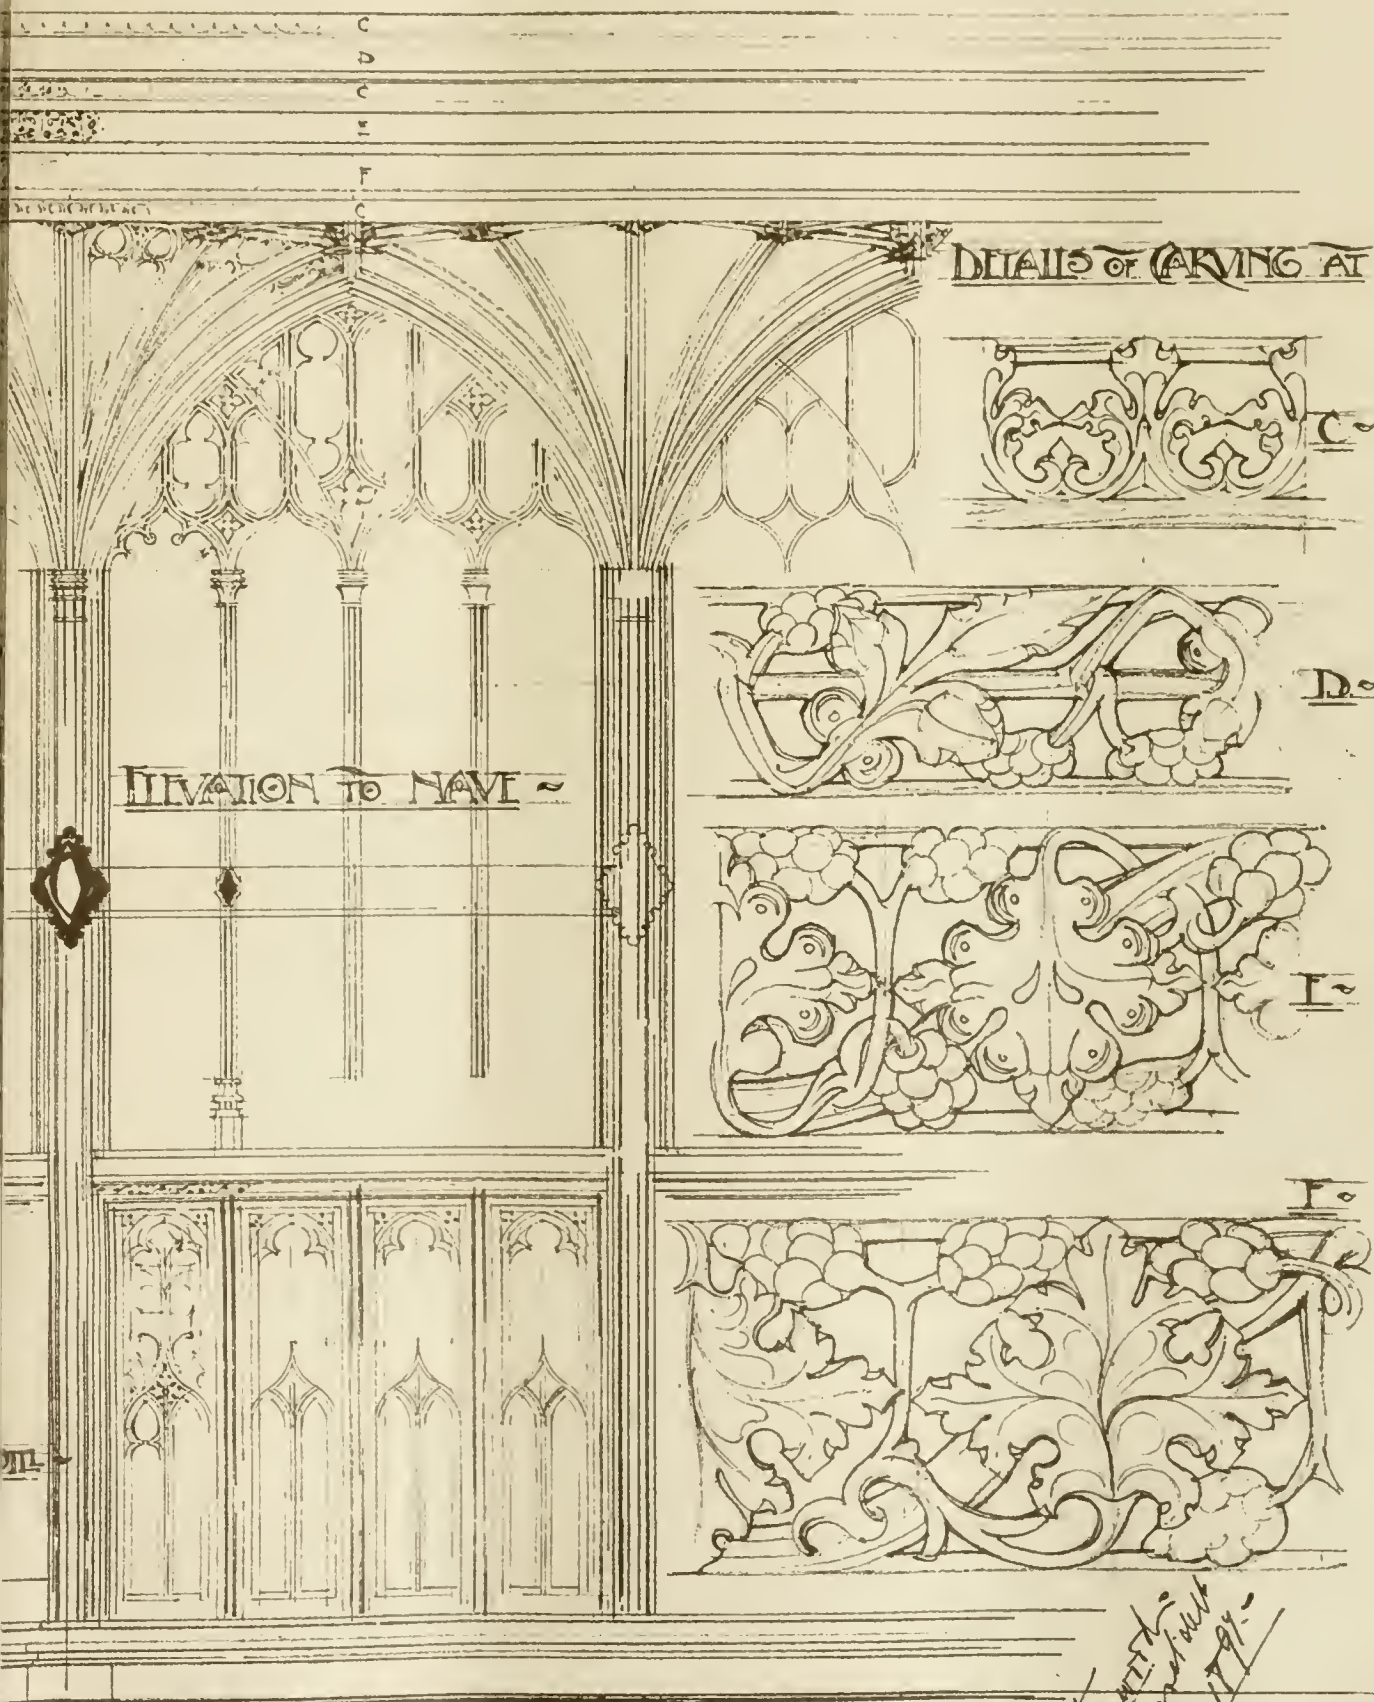 C
D
C
E
F
C
DETAILS OF CARVING AT
C
D
ELEVATION TO NAVE
E
F